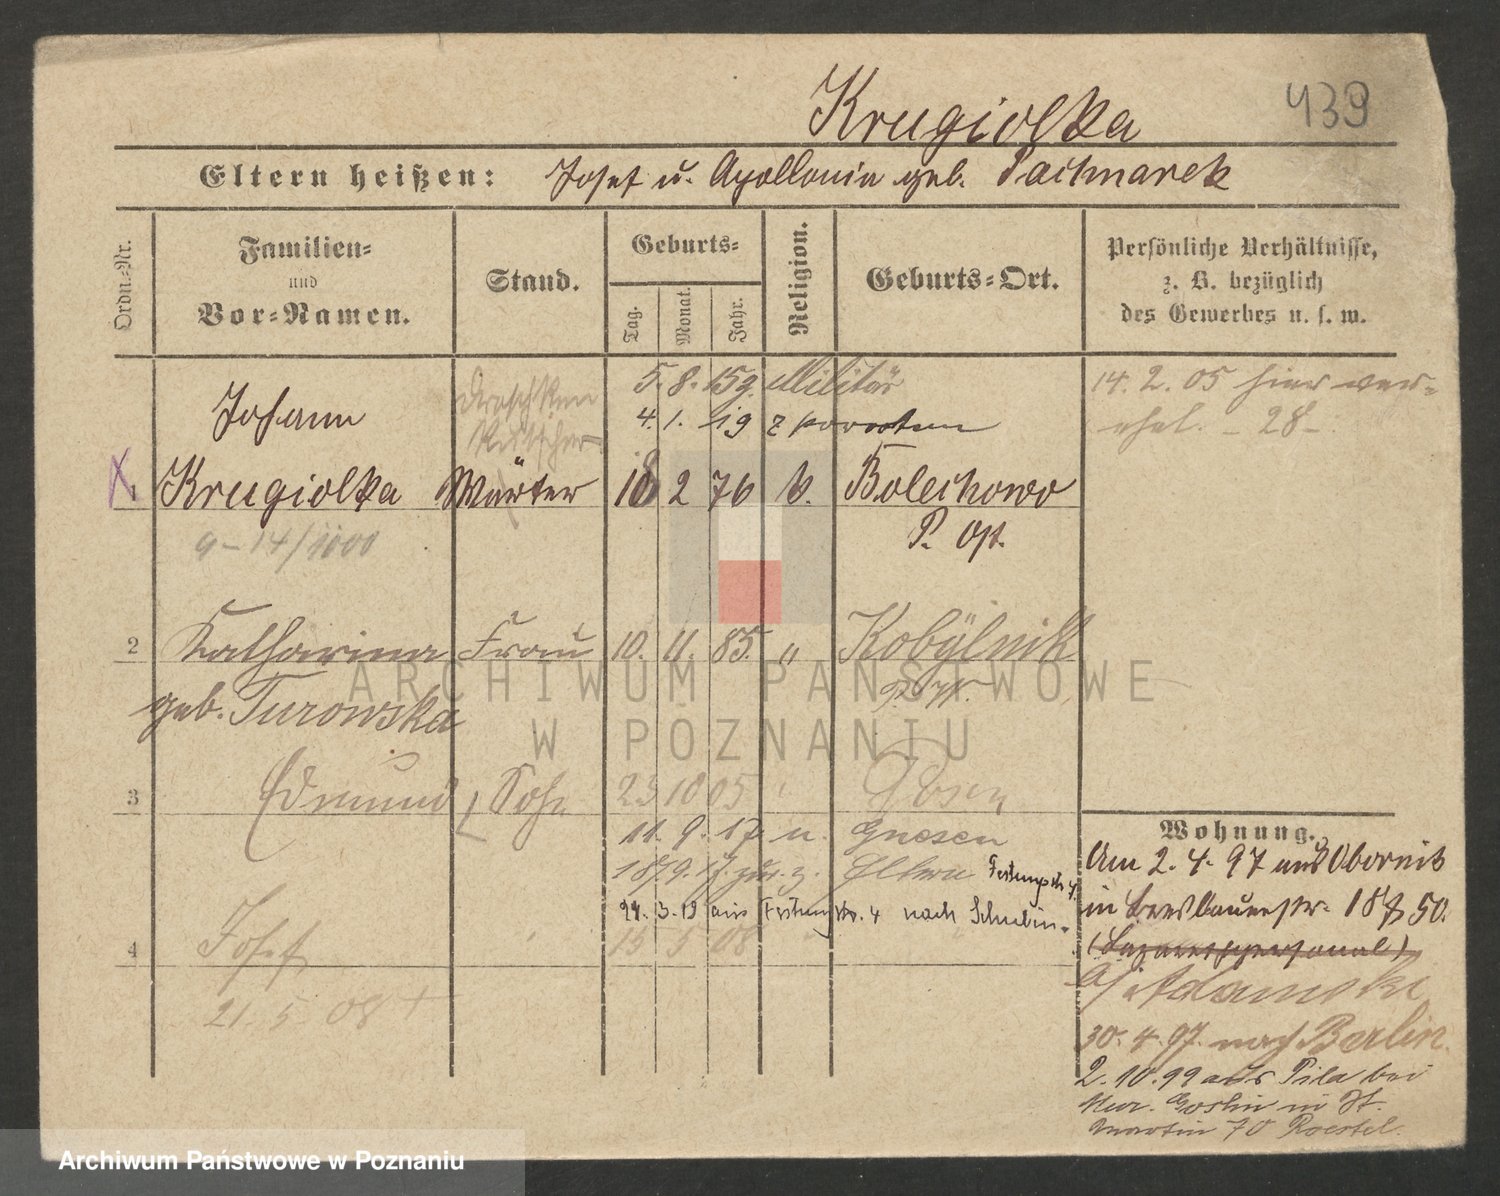 Krugiolka 439
Eltern heißen: Josef u. Apollonia geb.
Ordn.-Nr.
Familien-
und
Vor-Namen.
Stand.
Geburts-
Tag. Monat. Jahr.
Religion.
Geburts-Ort.
Persönliche Verhältnisse,
z. B. bezüglich
des Gewerbes u. s. w.
5. 8. 15 Militär
14. 2. 05 hier ver-
ehel. - 28 -
Johann
4. 1. 19
Krugiolka Wärter 18 2 76 k. Bolechowo
P. Ost.
9-14/1000
2 Katharina Frau 10. 11. 85. " Kobylnik
geb. Turowska
3 Edmund Sohn 23 10 05 Posen
11. 9. 17 n. Gnesen
18/9. 17. zur. z. Eltern
24. 3. 19 aus Festungstr. 4 nach Schubin.
4 Josef 15 5 08
21. 5. 08 +
Wohnung.
Am 2. 4. 97 aus Obornik
in 50.
(Lazarettpersonal)
bei Adamski
30. 4. 97. nach Berlin.
2. 10. 99 aus Pila bei
Mur. Goslin in St.
Martin 70
ARCHIWUM PAŃSTWOWE
W POZNANIU
Archiwum Państwowe w Poznaniu